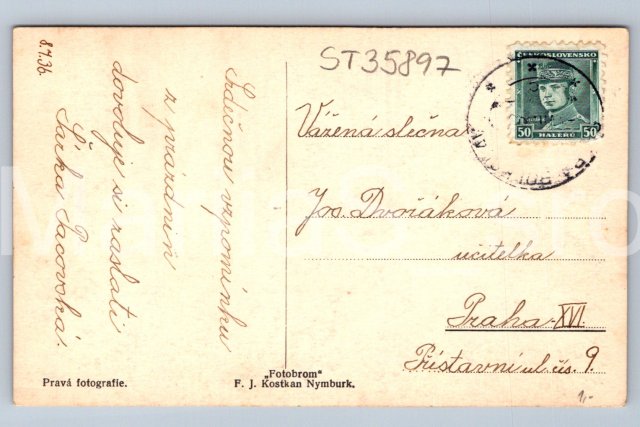 8.7.36.
Srdečnou vzpomínku
z prázdnin
dovoluje si zaslati
Šárka Pacovská.
ST35897
ČESKOSLOVENSKO
50 HALÉŘŮ 50
Vážená slečna
Jos. Dvořáková
učitelka
Praha-XVI.
Přístavní ul. čís. 9.
Pravá fotografie.
„Fotobrom"
F. J. Kostkan Nymburk.
1,-